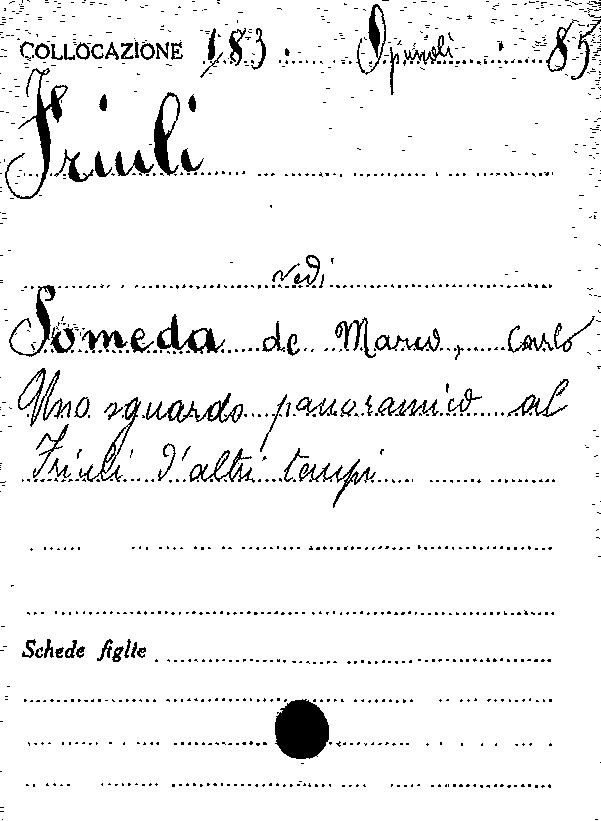 COLLOCAZIONE 183. Opuscoli. 85
Friuli
vedi
Someda de Marco, Carlo
Uno sguardo panoramico al
Friuli d'altri tempi
Schede figlie